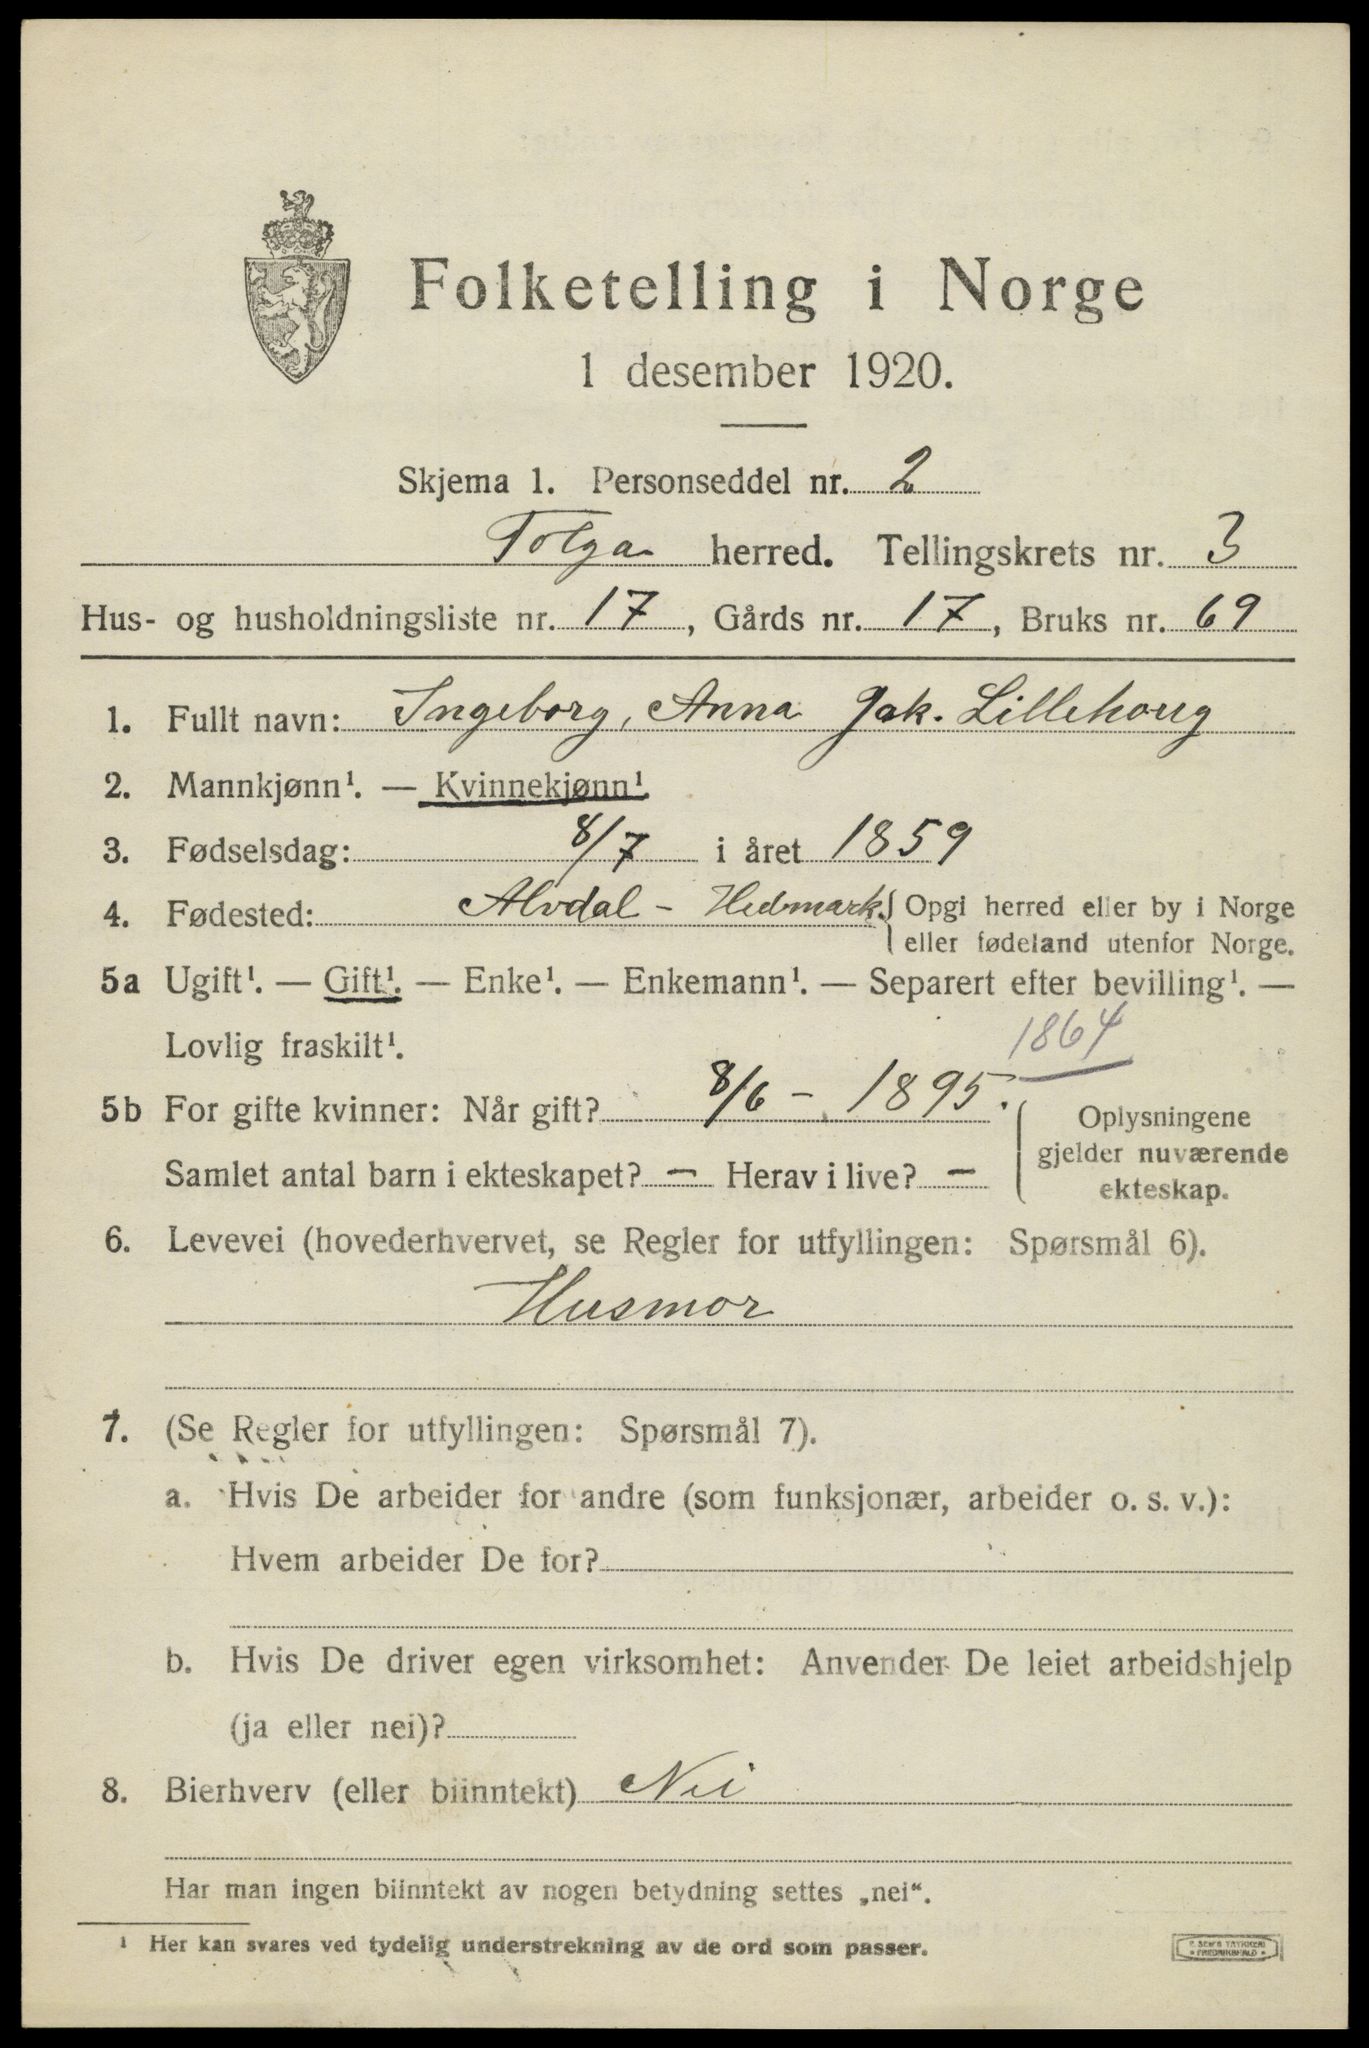 Folketelling i Norge
1 desember 1920.
Skjema 1. Personseddel nr. 2
Tolga herred. Tellingskrets nr. 3
Hus- og husholdningsliste nr. 17, Gårds nr. 17, Bruks nr. 69
1. Fullt navn: Ingeborg, Anna Jak. Lillehoug
2. Mannkjønn¹. — Kvinnekjønn¹
3. Fødselsdag: 8/7 i året 1859
4. Fødested: Alvdal - Hedmark. Opgi herred eller by i Norge
eller fødeland utenfor Norge.
5a Ugift¹. — Gift¹. — Enke¹. — Enkemann¹. — Separert efter bevilling¹. —
Lovlig fraskilt¹.
1864
5b For gifte kvinner: Når gift? 8/6 - 1895.
Samlet antal barn i ekteskapet? — Herav i live? —
Oplysningene
gjelder nuværende
ekteskap.
6. Levevei (hovederhvervet, se Regler for utfyllingen: Spørsmål 6).
Husmor
7. (Se Regler for utfyllingen: Spørsmål 7).
a. Hvis De arbeider for andre (som funksjonær, arbeider o. s. v.):
Hvem arbeider De for?
b. Hvis De driver egen virksomhet: Anvender De leiet arbeidshjelp
(ja eller nei)?
8. Bierhverv (eller biinntekt) Nei
Har man ingen biinntekt av nogen betydning settes „nei“.
¹ Her kan svares ved tydelig understrekning av de ord som passer.
FREDRIKSHALD